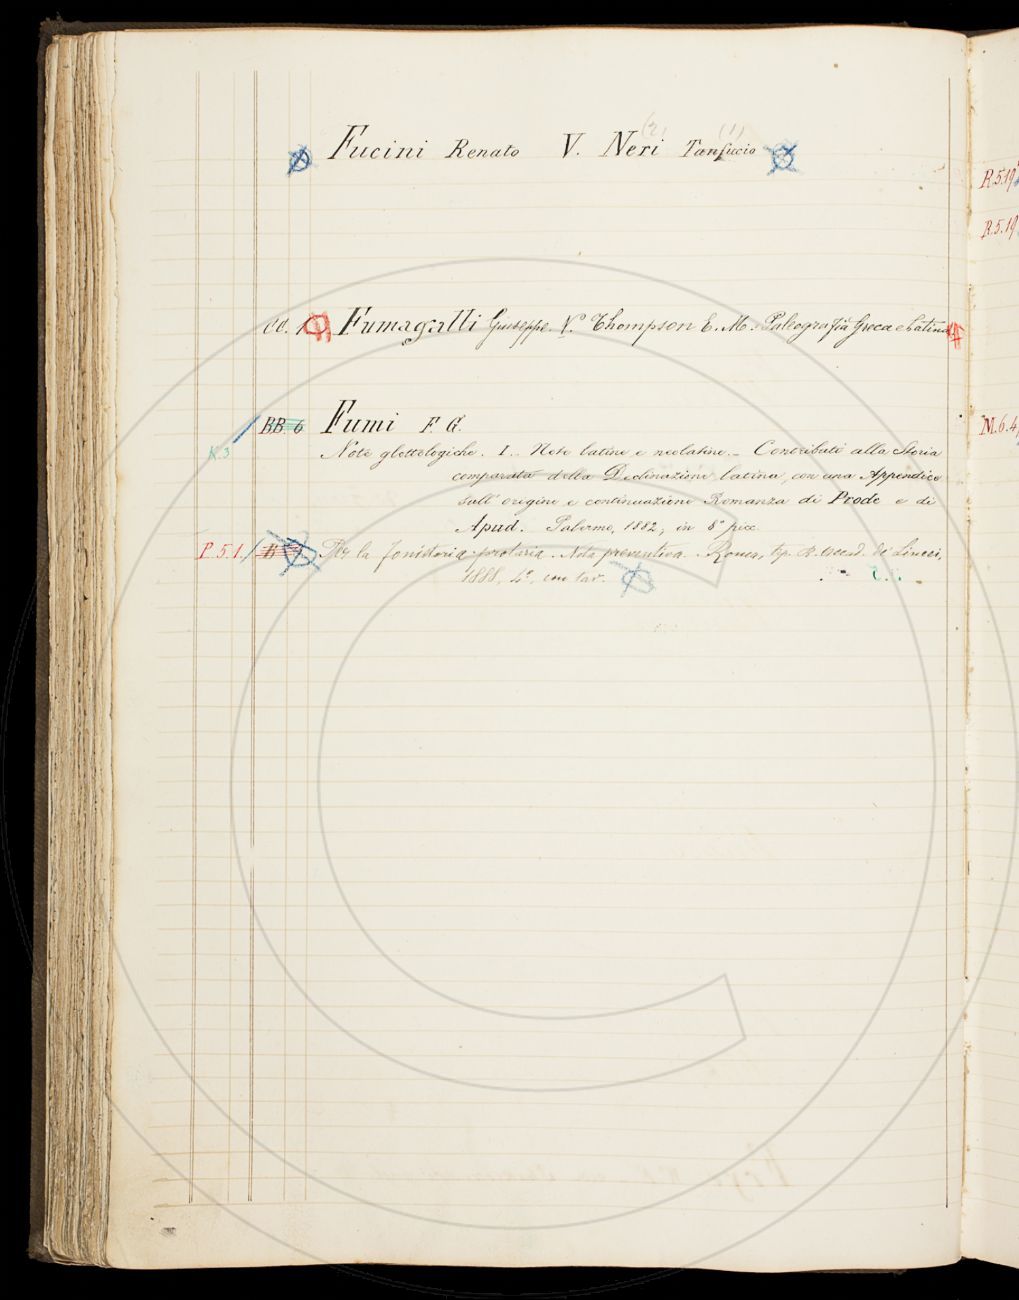 (2) (1)
Fucini Renato V. Neri Tanfucio
R.5.19
R.5.19
CC. 1 Fumagalli Giuseppe. V.º Thompson E. M. Paleografia Greca e Latina
BB. 6 Fumi F. G. M.6.4
K.3 Note glottologiche. I.. Note latine e neolatine. _ Contributi alla Storia
comparata della Declinazione latina, con una Appendice
sull' origine e continuazione Romanza di Prode e di
Apud. Palermo, 1882, in 8º picc.
P.5.1. Per la fonistoria protaria. Nota preventiva. Roma, tip. R. Accad. de' Lincei,
1888, 4º, con tav.